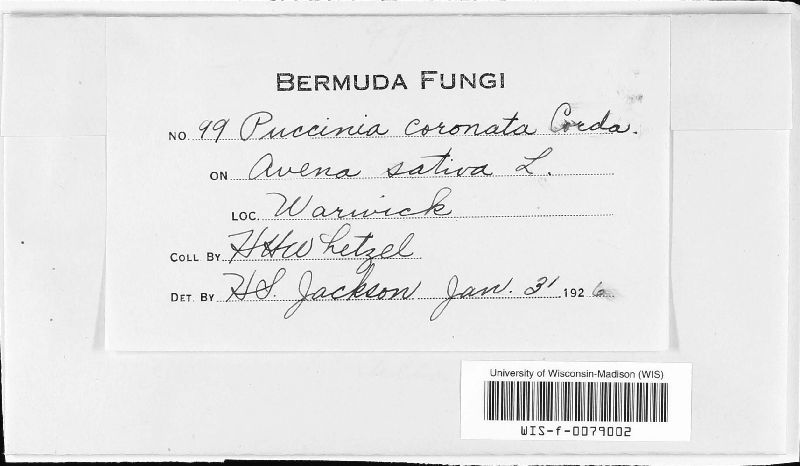 BERMUDA FUNGI
NO. 99 Puccinia coronata Corda.
ON Avena sativa L.
LOC. Warwick
COLL BY HHWhetzel
DET. BY H.S. Jackson Jan. 31 1926
University of Wisconsin-Madison (WIS)
WIS-f-0079002